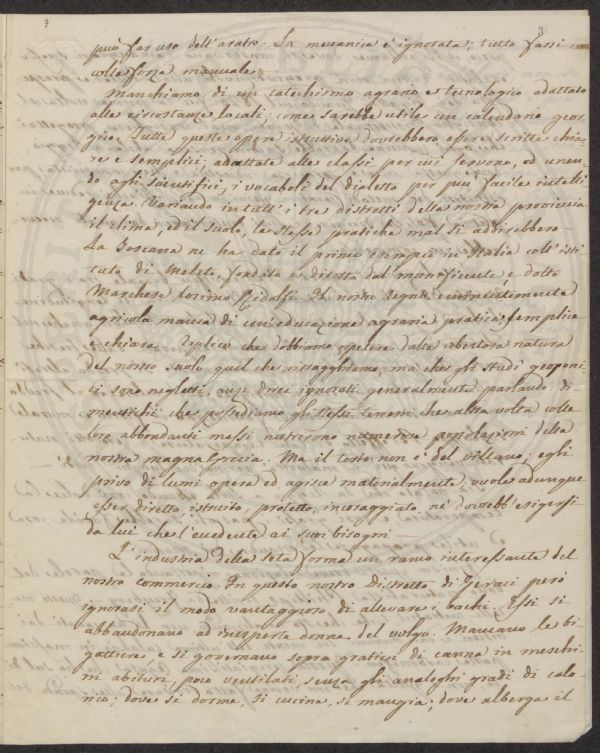 3
3
può far uso dell'aratro. La meccanica è ignorata; tutto fassi
colla forza manuale.
Manchiamo di un catechismo agrario e tecnologico adattato
alle circostanze locali, come sarebbe utile un calendario geor-
gico. Tutte queste opere istruttive dovrebbero essere scritte chia-
re e semplici, adattate alle classi per cui servono, ed unen-
do agli scientifici, i vocaboli del dialetto per più facile intelli
genza. Variando in tutt'i tre distretti della nostra provincia
il clima, ed il suolo, le stesse pratiche mal si addirebbero —
La Toscana ne ha dato il primo esempio in Italia coll'isti
tuto di Meleto, fondato e diretto dal munificente e dotto
Marchese Cosimo Ridolfi. Il nostro Regno eminentemente
agricola manca di un'educazione agraria pratica, semplice
e chiara. Replico che dobbiamo ripetere dalla ubertosa natura
del nostro suolo quel che raccogliamo; ma che gli studî geoponi-
ci sono negletti, anzi direi ignorati generalmente parlando: di-
mentichi che possediamo gli stessi terreni che altra volta colle
loro abbondanti messi nutrirono numerose popolazioni della
nostra magna Grecia. Ma il torto non è del villano; egli
privo di lumi opera ed agisce materialmente, vuole adunque
esser diretto, istruito, protetto, incoraggiato, nè dovrebb'esigersi
da lui che l'eccedente ai suoi bisogni —
L'industria della seta forma un ramo interessante del
nostro commercio. In questo nostro distretto di Geraci però
ignorasi il modo vantaggioso di allevare i bachi. Essi si
abbandonano ad inesperte donne del volgo. Mancano le bi-
gattiere, e si governano sopra graticci di canna in meschi-
ni abituri, poco ventilati, senza gli analoghi gradi di calo-
rico; dove si dorme, si cucina, si mangia; dove alberga il